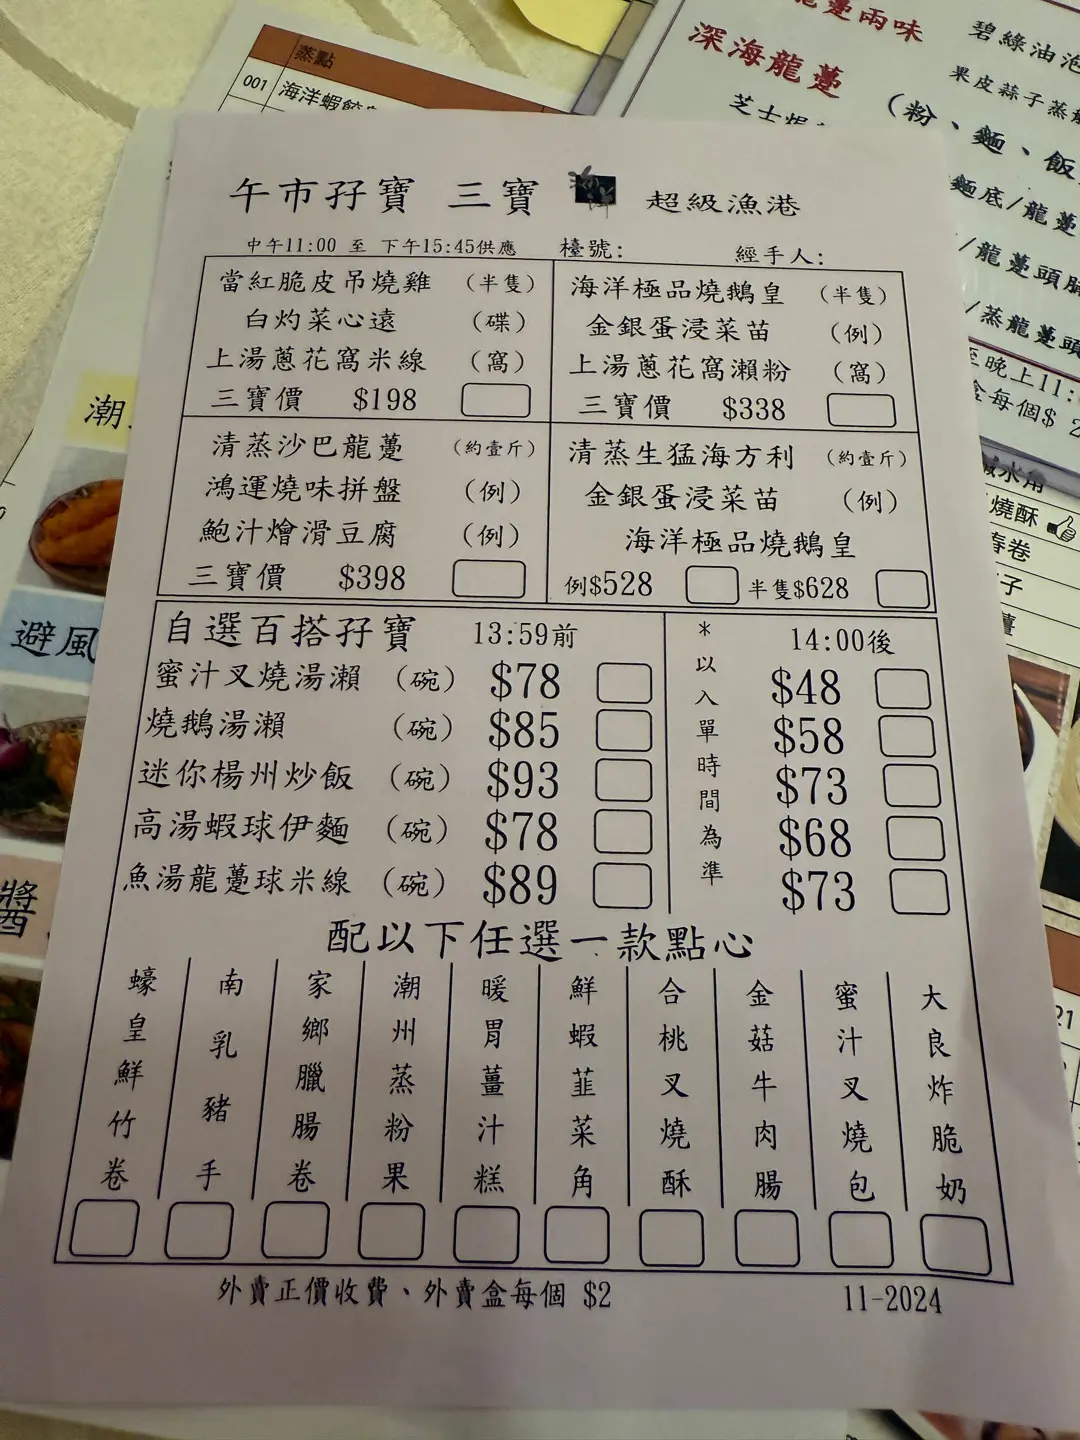 蒸點
001 海洋蝦餃
龍躉兩味
深海龍躉
碧綠油泡
果皮蒜子蒸
芝士焗
(粉、麵、飯
麵底/龍躉
/龍躉頭腩
/蒸龍躉頭
至晚上11:
盒每個$ 2
潮
避風
醬
鹹水角
燒酥
春卷
子
21
午市孖寶 三寶 超級漁港
中午11:00 至 下午15:45供應 檯號: 經手人:
當紅脆皮吊燒雞 (半隻)
白灼菜心遠 (碟)
上湯蔥花窩米線 (窩)
三寶價 $198
海洋極品燒鵝皇 (半隻)
金銀蛋浸菜苗 (例)
上湯蔥花窩瀨粉 (窩)
三寶價 $338
清蒸沙巴龍躉 (約壹斤)
鴻運燒味拼盤 (例)
鮑汁燴滑豆腐 (例)
三寶價 $398
清蒸生猛海方利 (約壹斤)
金銀蛋浸菜苗 (例)
海洋極品燒鵝皇
例$528 半隻$628
自選百搭孖寶 13:59前 14:00後
蜜汁叉燒湯瀨 (碗) $78 $48
燒鵝湯瀨 (碗) $85 $58
迷你楊州炒飯 (碗) $93 $73
高湯蝦球伊麵 (碗) $78 $68
魚湯龍躉球米線 (碗) $89 $73
*以入單時間為準
配以下任選一款點心
蠔皇鮮竹卷
南乳豬手
家鄉臘腸卷
潮州蒸粉果
暖胃薑汁糕
鮮蝦韮菜角
合桃叉燒酥
金菇牛肉腸
蜜汁叉燒包
大良炸脆奶
外賣正價收費、外賣盒每個 $2
11-2024